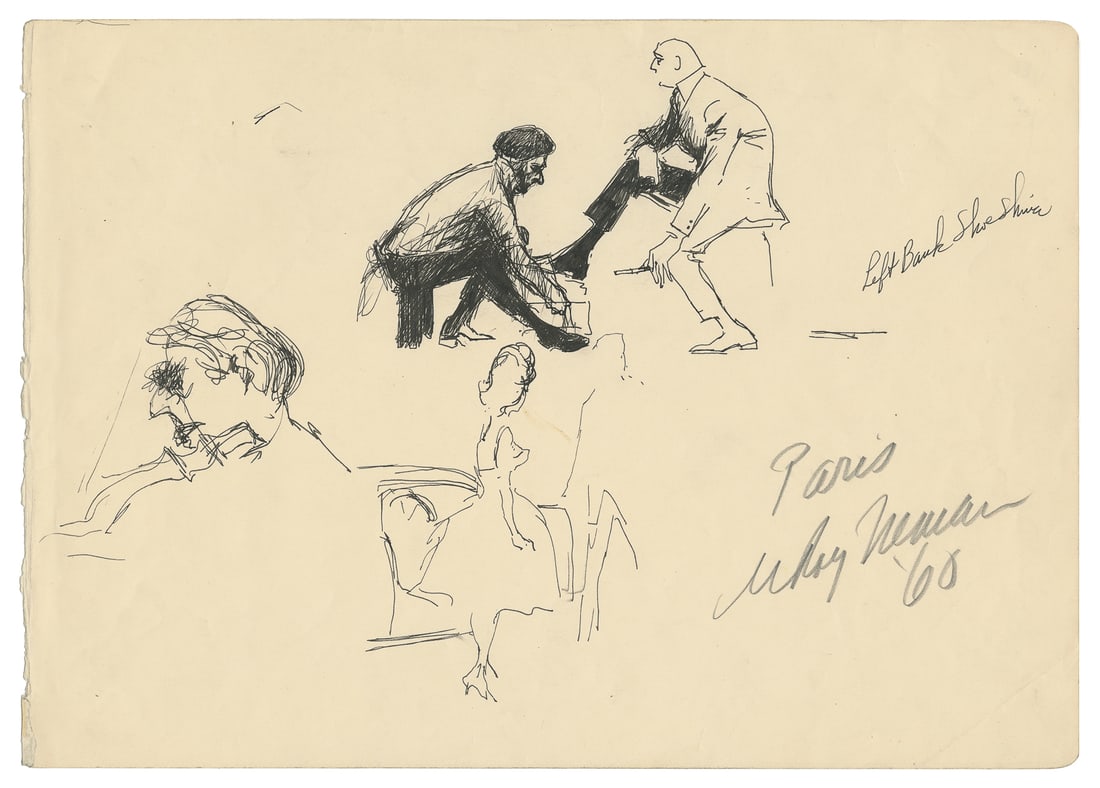 Left Bank Shoe Shine
Paris
LeRoy Neiman
'60